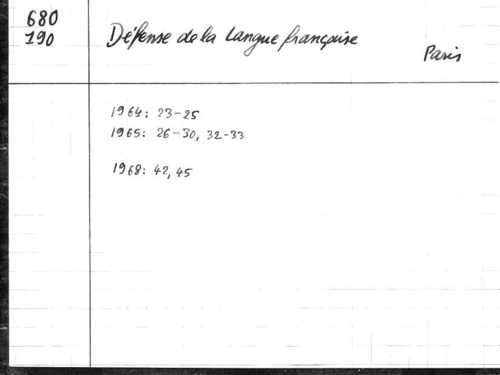 680
190
Défense de la Langue française
Paris
1964: 23-25
1965: 26-30, 32-33
1968: 42, 45